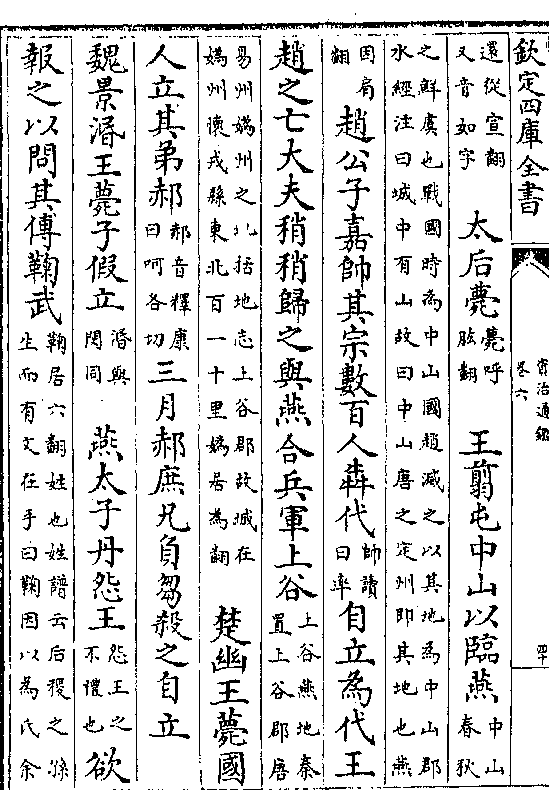 欽定四庫全書
資治通鑑
卷六
四十
還從宣翻
又音如字
太后薨
薨呼
肱翻
王翦屯中山以臨燕
中山
春秋
之鮮虞也戰國時為中山國趙滅之以其地為中山郡
水經注曰城中有山故曰中山唐之定州即其地也燕
因肩
翻
趙公子嘉帥其宗數百人犇代
帥讀
曰率
自立為代王
趙之亡大夫稍稍歸之與燕合兵軍上谷
上谷燕地秦
置上谷郡唐
易州媯州之北括地志上谷郡故城在
媯州懷戎縣東北百一十里媯居為翻
楚幽王薨國
人立其弟郝
郝音釋康
曰呵各切
三月郝庶兄負芻殺之自立
魏景湣王薨子假立
湣與
閔同
燕太子丹怨王
怨王之
不禮也
欲
報之以問其傅鞠武
鞠居六翻姓也姓譜云后稷之孫
生而有文在手曰鞠因以為氏余